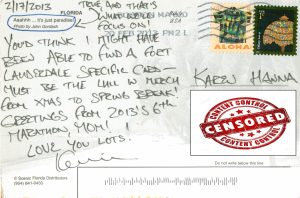 2/17/2013
FLORIDA
Aaahhh ... It's just paradise!
Photo by John Gondeck
TRUE AND THAT'S
WHAT WE'LL
FOCUS ON!
USA
20 FEB 2013 PM 2 L
ALOHA
YOU'D THINK I MIGHT HAVE
BEEN ABLE TO FIND A FORT
LAUDERDALE SPECIFIC CARD
MUST BE THE LULL IN MERCH
FROM XMAS TO SPRING BREAK!
GREETINGS FROM 2013'S 6th
MARATHON, MOM!
LOVE YOU LOTS!
KAREN HANNA
CONTENT CONTROL
CENSORED
CONTENT CONTROL
Do not write below this line
© Scenic Florida Distributors